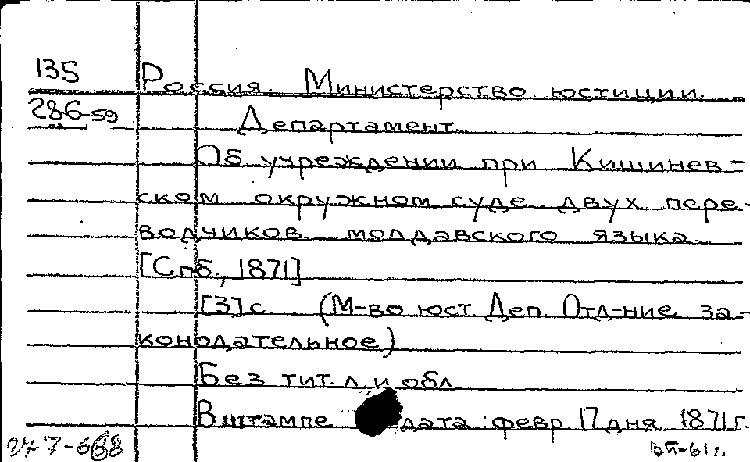 135 Россия. Министерство юстиции.
286-59 Департамент
Об учреждении при Кишинев-
ском окружном суде двух пере-
водчиков молдавского языка
[Спб., 1871]
[3] с. (М-во юст. Деп. Отд-ние за-
конодательное)
Без тит. л. и обл.
В штампе дата: февр. 17 дня 1871 г.